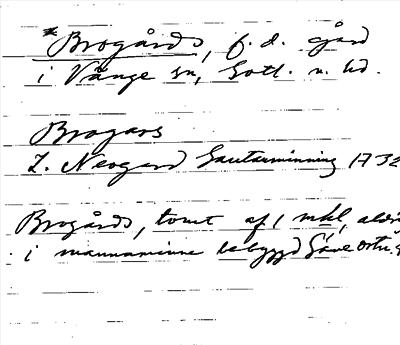 *Brogårds, f. d. gård
i Vänge sn, Gotl. n. hd.
Brogars
L. Neogard Gautauminning 1732
Brogårds, tomt af 1 mkl, aldri
i mannaminne bebyggd Säve Ortn.